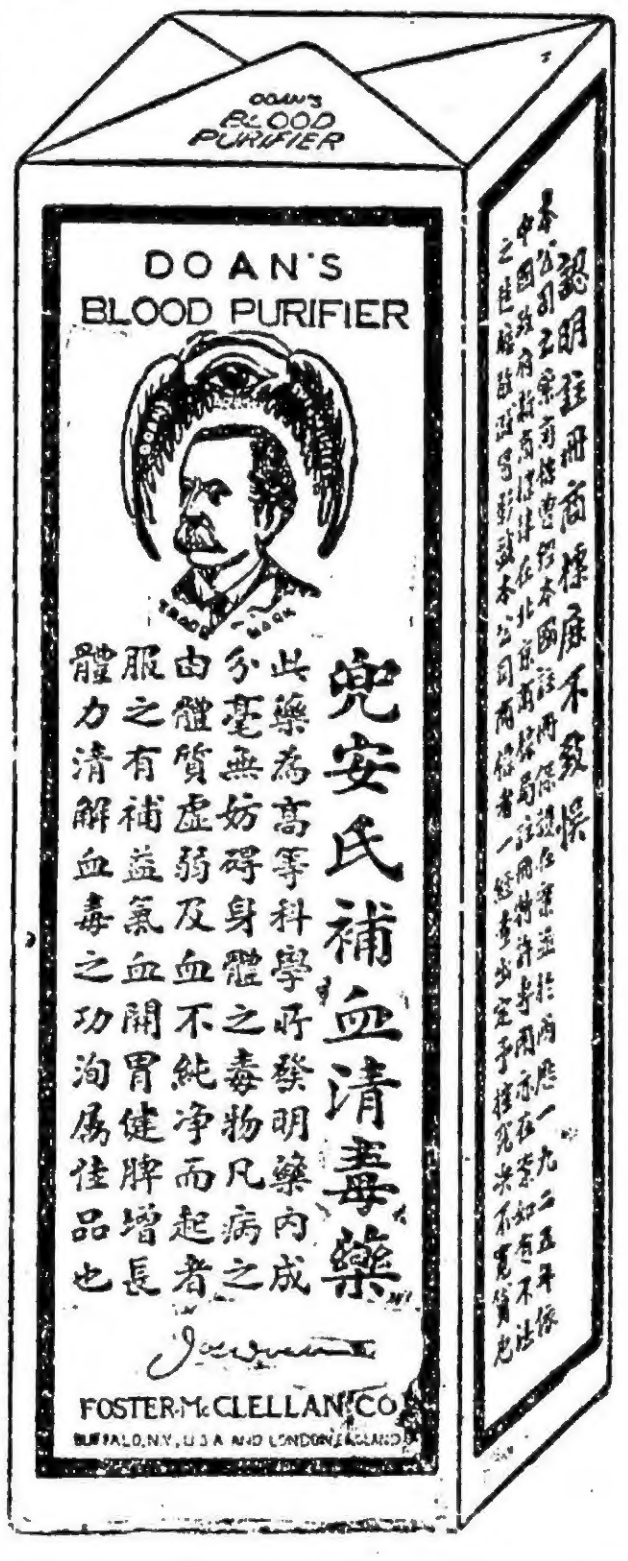 DOAN'S
BLOOD
PURIFIER
DOAN'S
BLOOD PURIFIER
TRADE MARK
兜安氏補血清毒藥
此藥為高等科學所發明藥內成
分毫無妨碍身體之毒物凡病之
由體質虛弱及血不純净而起者
服之有補益氣血開胃健脾增長
體力清解血毒之功洵屬佳品也
FOSTER-McCLELLAN CO
BUFFALO, N.Y., U.S.A AND LONDON, ENGLAND
認明註冊商標庶不致悞
本公司各藥商標曾經本國註冊保護在案並於西歷一九二五年依
中國政府新商標法在北京商標局註冊特許專用亦在案如有不法
之徒膽敢
本公司商標者一經查出定予控究決不寬貸也